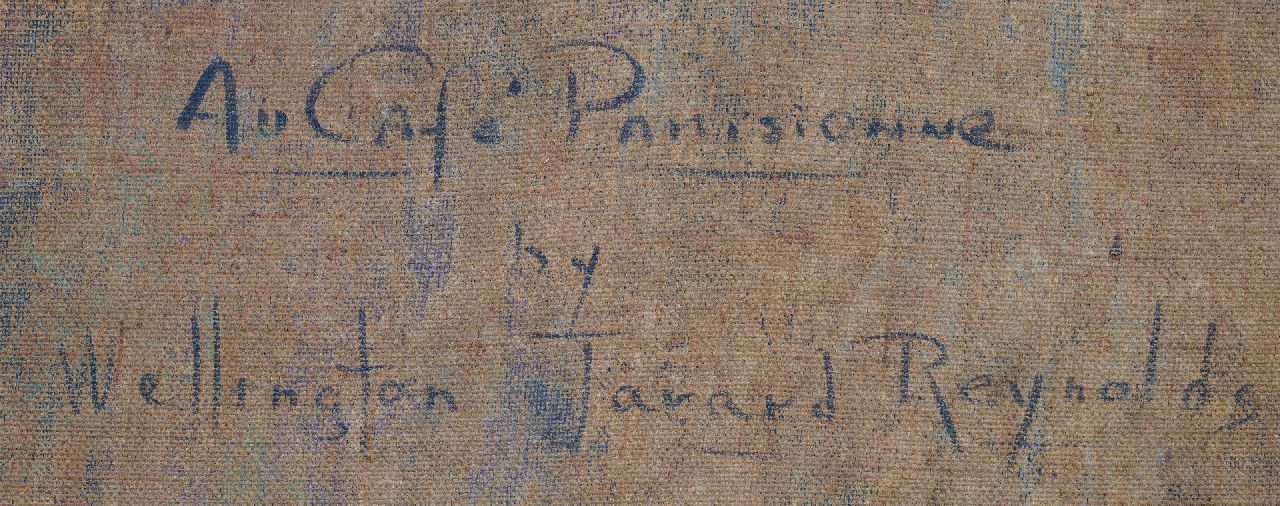 Au Café Parisienne
by
Wellington Jarard Reynolds